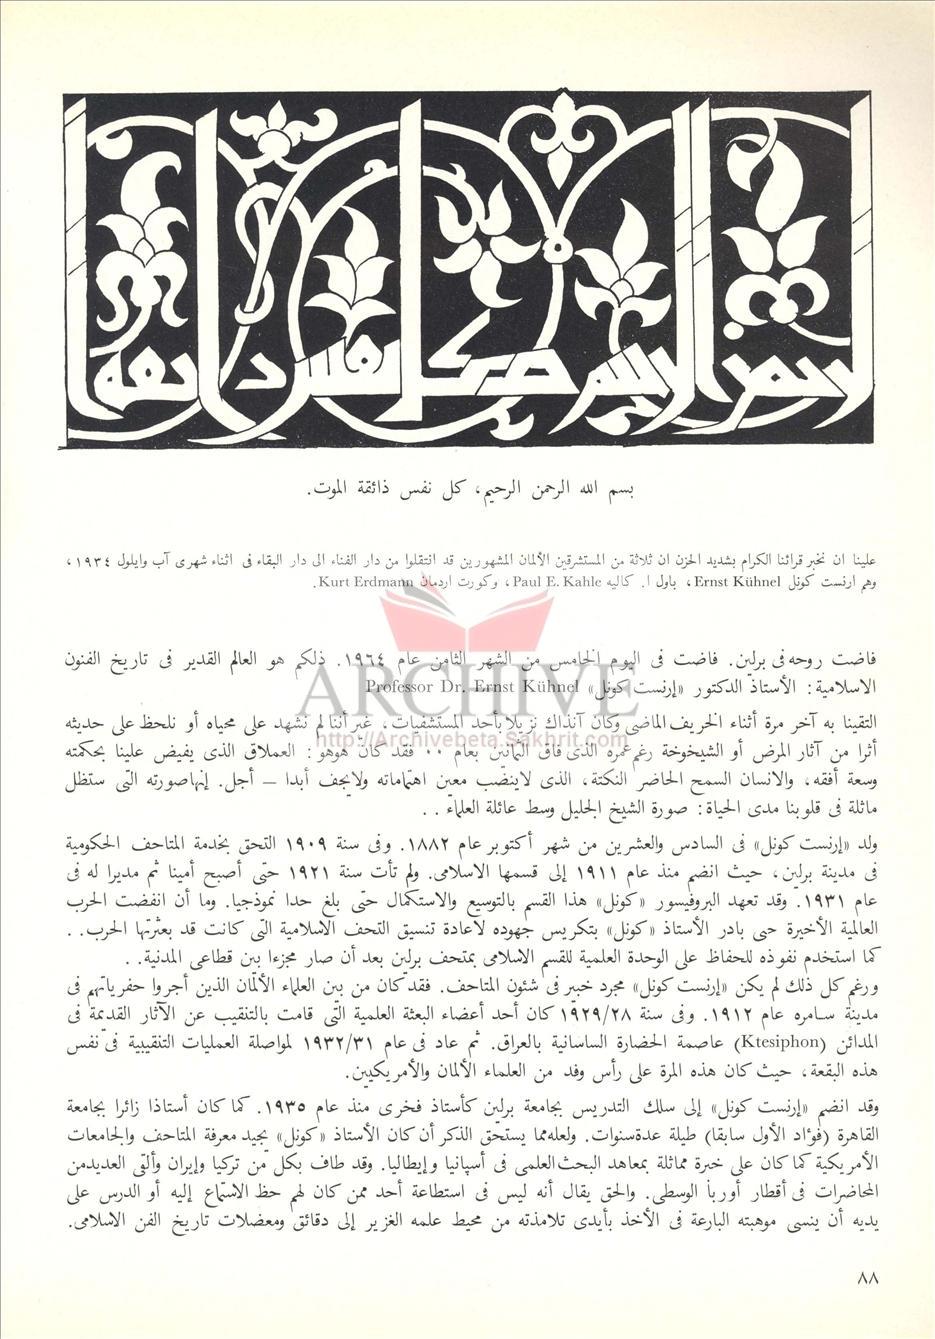 بسم الله الرحمن الرحيم، كل نفس ذائقة الموت.
علينا ان نخبر قرائنا الكرام بشديد الحزن ان ثلاثة من المستشرقين الألمان المشهورين قد انتقلوا من دار الفناء الى دار البقاء فى اثناء شهرى آب وايلول ١٩٣٤،
وهم ارنست كونل Ernst Kühnel، باول ا. كاليه Paul E. Kahle، وكورت اردمان Kurt Erdmann.
فاضت روحه فى برلين. فاضت فى اليوم الخامس من الشهر الثامن عام ١٩٦٤. ذلكم هو العالم القدير فى تاريخ الفنون
الاسلامية: الأستاذ الدكتور «إرنست كونل» Professor Dr. Ernst Kühnel
ARCHIVE
http://Archivebeta.Sakhrit.com
التقينا به آخر مرة أثناء الخريف الماضى وكان آنذاك نزيلا بأحد المستشفيات، غير أننا لم نشهد على محياه أو نلحظ على حديثه
أثرا من آثار المرض أو الشيخوخة رغم عمره الذى فاق الثمانين بعام ٠٠ فقد كان هوهو: العملاق الذى يفيض علينا بحكمته
وسعة أفقه، والانسان السمح الحاضر النكتة، الذى لاينضب معين اهتماماته ولايجف أبدا — أجل. إنها صورته التى ستظل
ماثلة فى قلوبنا مدى الحياة: صورة الشيخ الجليل وسط عائلة العلماء . .
ولد «إرنست كونل» فى السادس والعشرين من شهر أكتوبر عام ١٨٨٢. وفى سنة ١٩٠٩ التحق بخدمة المتاحف الحكومية
فى مدينة برلين، حيث انضم منذ عام ١٩١١ إلى قسمها الاسلامى. ولم تأت سنة ١٩٢١ حتى أصبح أمينا ثم مديرا له فى
عام ١٩٣١. وقد تعهد البروفيسور «كونل» هذا القسم بالتوسيع والاستكمال حتى بلغ حدا نموذجيا. وما أن انفضت الحرب
العالمية الأخيرة حتى بادر الأستاذ «كونل» بتكريس جهوده لاعادة تنسيق التحف الاسلامية التى كانت قد بعثرتها الحرب. .
كما استخدم نفوذه للحفاظ على الوحدة العلمية للقسم الاسلامى بمتحف برلين بعد أن صار مجزءا بين قطاعى المدينة. .
ورغم كل ذلك لم يكن «إرنست كونل» مجرد خبير فى شئون المتاحف. فقد كان من بين العلماء الألمان الذين أجروا حفرياتهم فى
مدينة سامره عام ١٩١٢. وفى سنة ١٩٢٩/٢٨ كان أحد أعضاء البعثة العلمية التى قامت بالتنقيب عن الآثار القديمة فى
المدائن (Ktesiphon) عاصمة الحضارة الساسانية بالعراق. ثم عاد فى عام ١٩٣٢/٣١ لمواصلة العمليات التنقيبية فى نفس
هذه البقعة، حيث كان هذه المرة على رأس وفد من العلماء الألمان والأمريكيين.
وقد انضم «إرنست كونل» إلى سلك التدريس بجامعة برلين كأستاذ فخرى منذ عام ١٩٣٥. كما كان أستاذا زائرا بجامعة
القاهرة (فوٴاد الأول سابقا) طيلة عدة سنوات. ولعله مما يستحق الذكر أن كان الأستاذ «كونل» يجيد معرفة المتاحف والجامعات
الأمريكية كما كان على خبرة مماثلة بمعاهد البحث العلمى فى أسپانيا وإيطاليا. وقد طاف بكل من تركيا وإيران وألقى العديد من
المحاضرات فى أقطار أوربا الوسطى. والحق يقال أنه ليس فى استطاعة أحد ممن كان لهم حظ الاستماع إليه أو الدرس على
يديه أن ينسى موهبته البارعة فى الأخذ بأيدى تلامذته من محيط علمه الغزير إلى دقائق ومعضلات تاريخ الفن الاسلامى.
٨٨